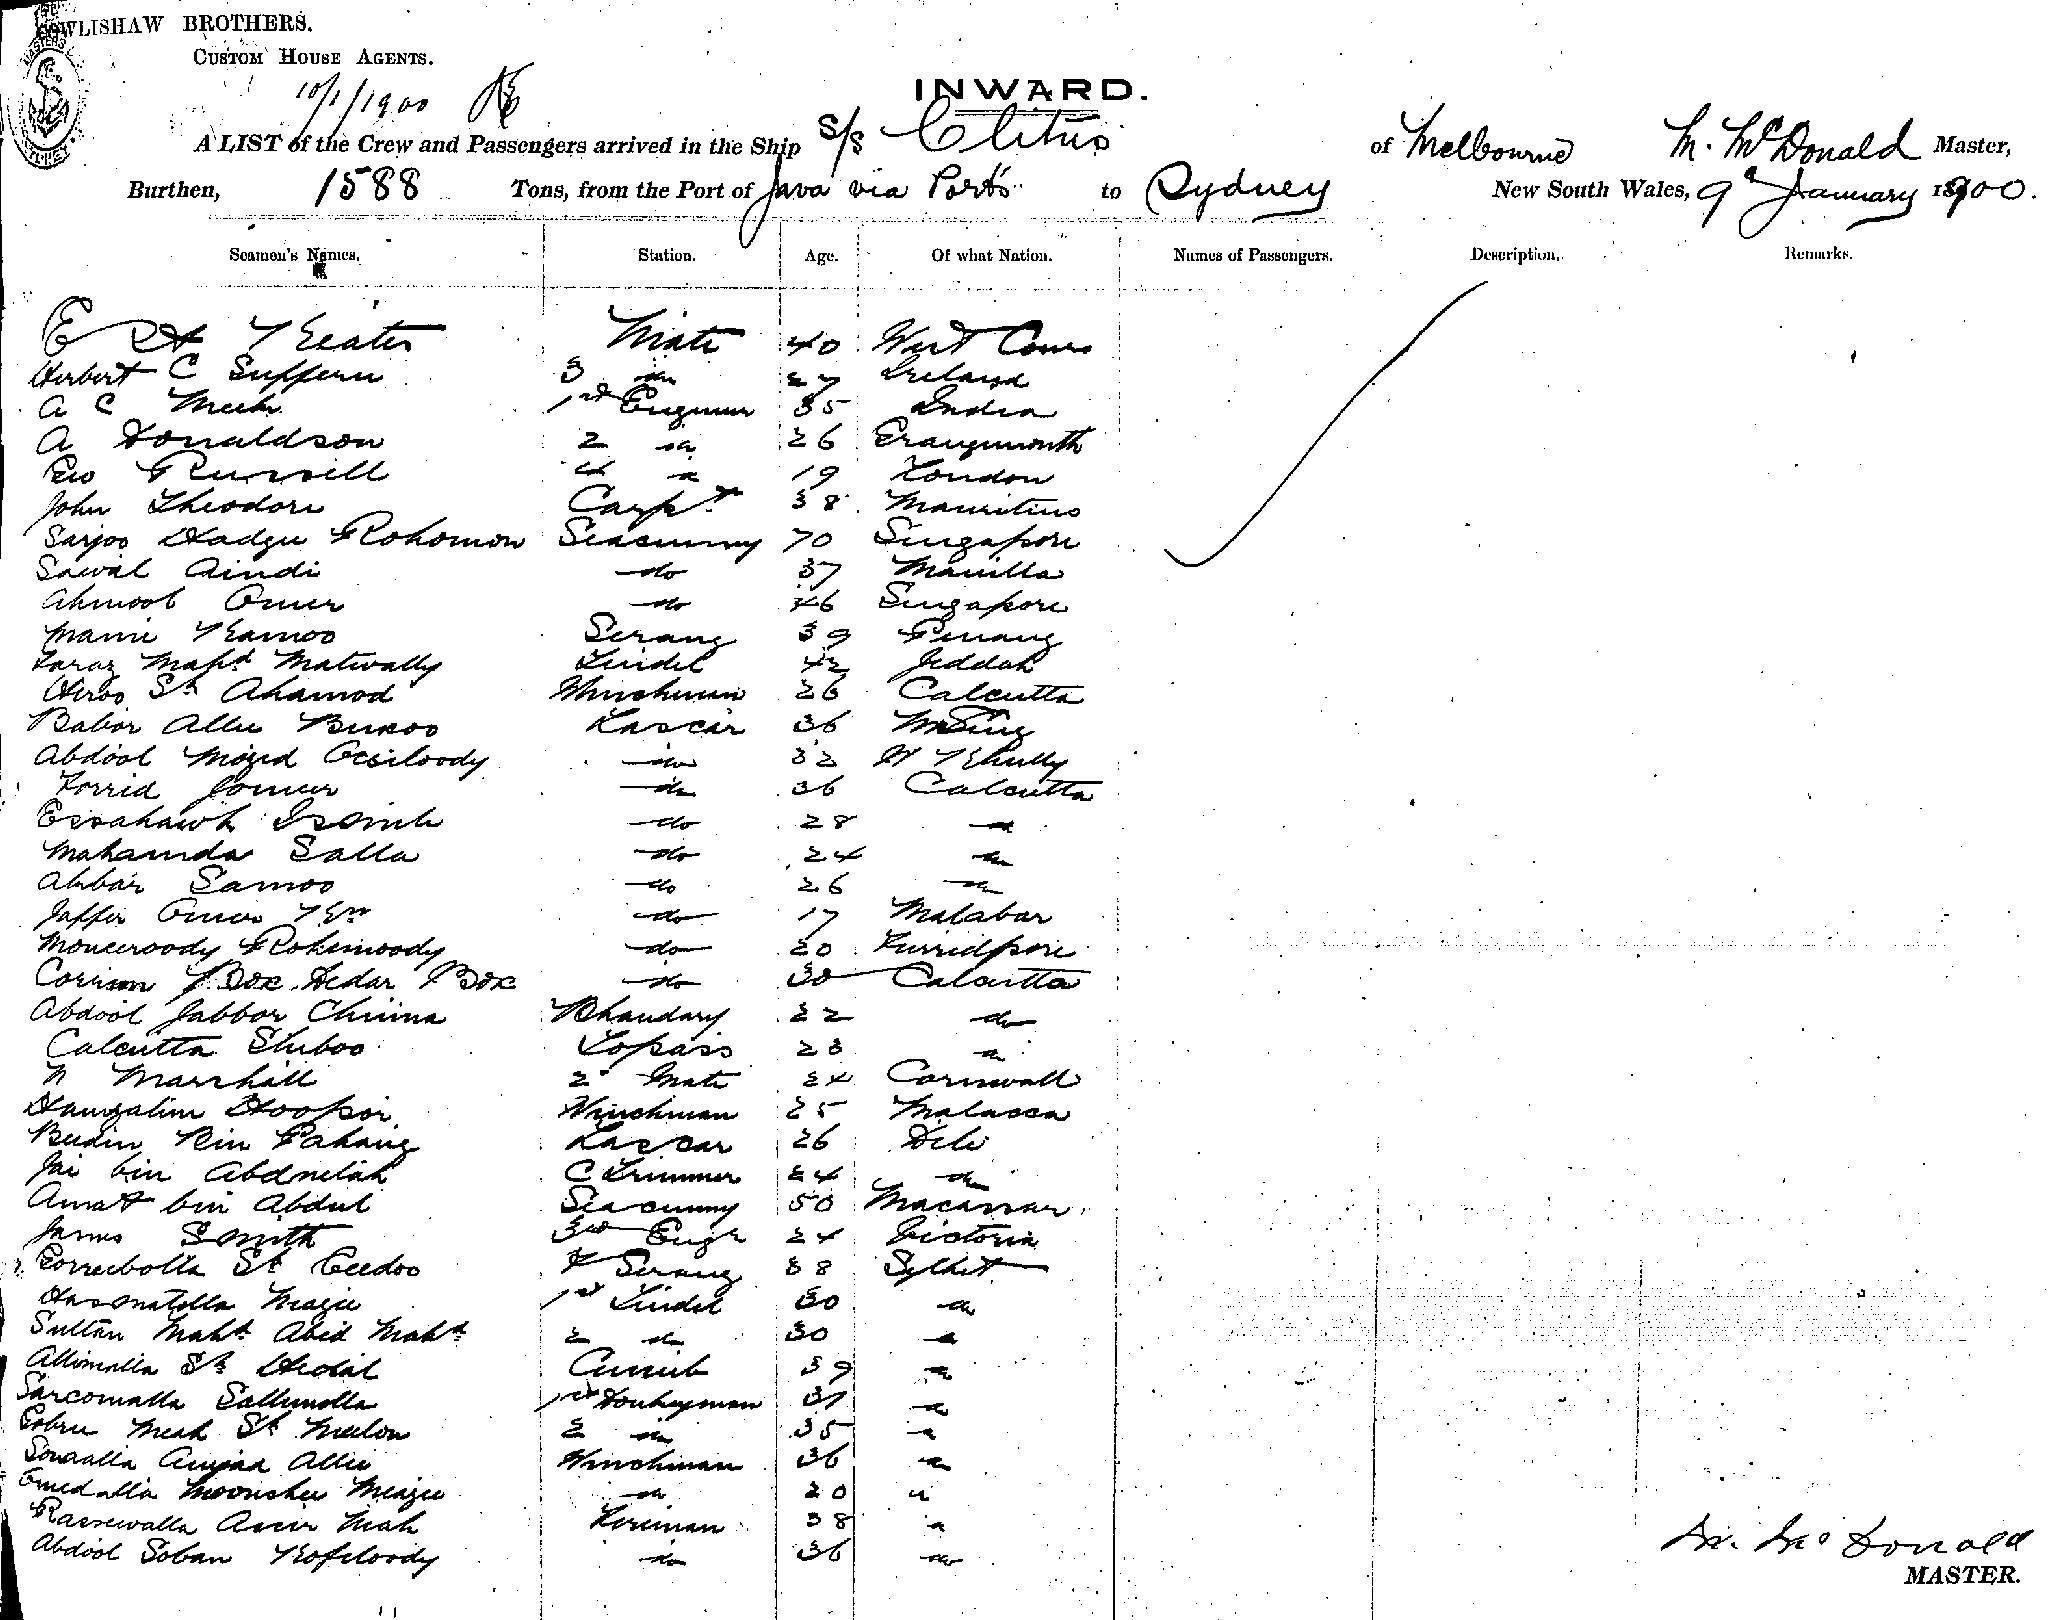 COWLISHAW BROTHERS.
CUSTOM HOUSE AGENTS.
10/1/1900
INWARD.
A LIST of the Crew and Passengers arrived in the Ship s/s Clitus of Melbourne M. McDonald Master,
Burthen, 1588 Tons, from the Port of Java via Ports to Sydney New South Wales, 9 January 1900.
Seamen's Names. Station. Age. Of what Nation. Names of Passengers. Description. Remarks.
E H Mate 40 West
Herbert C Suffern 3 do 27 Ireland
A C Meek 1st Engineer 35 India
A Donaldson 2 do 26 Grangemouth
Geo Russell 4 do 19 London
John Theodore Carpt 38 Mauritius
Sarjoo Hadgee Rohomon Seacunny 70 Singapore
Sawal Aindi do 37 Manilla
Ahmoot Omer do 46 Singapore
Mamie Kamoo Serang 39 Penang
Faraz Maht Matwally Tindel 42 Jeddah
Heroo Sk Ahamod Winchman 26 Calcutta
Babor Allie Buxoo Lascar 36
Abdool Mozid do 32
Forrid Jomer do 36 Calcutta
Essahawk Isomb do 28 do
Mahamda Salla do 24 do
Akbar Samoo do 26 do
Jaffer Omer do 17 Malabar
Monceroody Rohimoody do 20 Furridpore
Corrim Box Hedar Box do 30 Calcutta
Abdool Jabbor Chinna Bhandary 22 do
Calcutta Shiboo Topass 23 do
N Marshall 2 Mate 24 Cornwall
Hangalim Hoopor Winchman 25 Malacca
Budin Bin Pahang Lascar 26 Deli
Jai bin Abdulah C Trimmer 24 do
Amat bin Abdul Seacunny 50 Macassar
James Smith 3rd Engr 24 Victoria
Sk Ceedoo Serang 38 Sylhet
Hasonatolla Meazee 1st Tindel 30 do
Sultan Maht Abid Maht 2 do 30 do
Allimolla Sk Hedal Cassab 39 do
Sarcomalla Sallimolla 1st Donkeyman 37 do
Gobru Meah Sk Meelon 2 do 35 do
Sonaalla Amjad Allie Winchman 36 do
Omedalla Moonshee Meazee do 20 do
Amir Mah Fireman 38 do
Abdool Soban do 36 do
M. McDonald
MASTER.